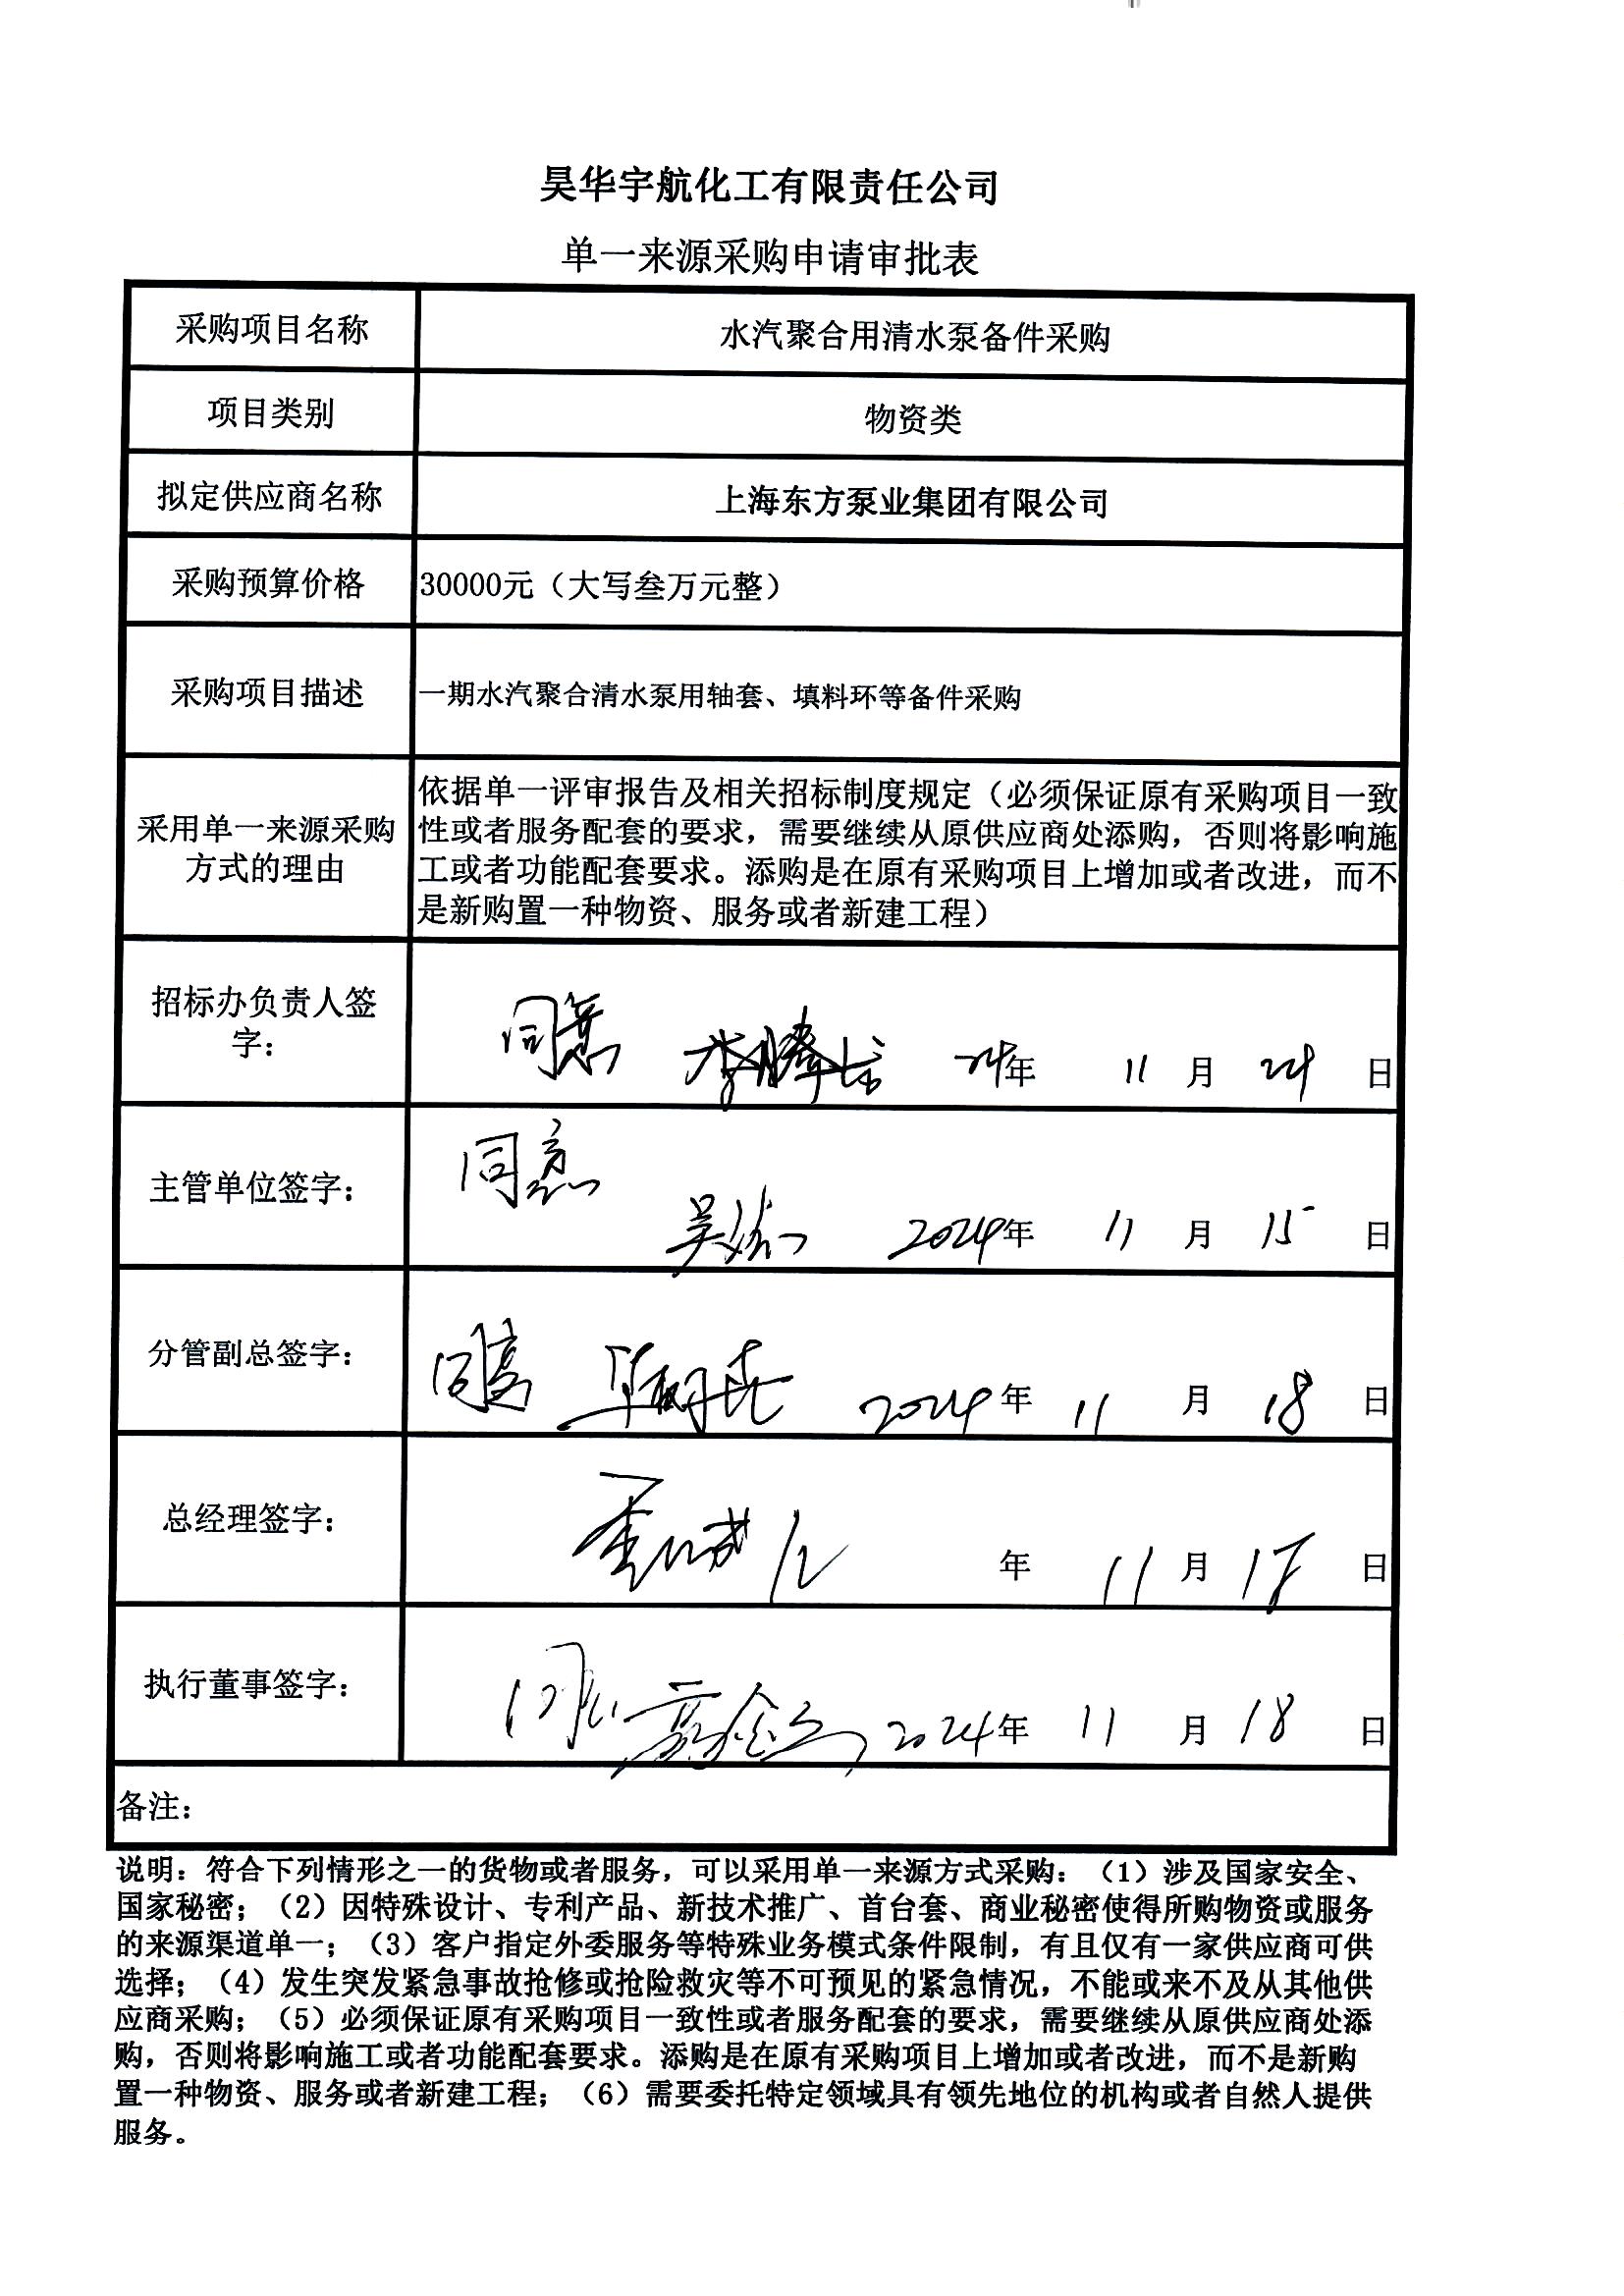 昊华宇航化工有限责任公司
单一来源采购申请审批表
采购项目名称
水汽聚合用清水泵备件采购
项目类别
物资类
拟定供应商名称
上海东方泵业集团有限公司
采购预算价格
30000元（大写叁万元整）
采购项目描述
一期水汽聚合清水泵用轴套、填料环等备件采购
采用单一来源采购
方式的理由
依据单一评审报告及相关招标制度规定（必须保证原有采购项目一致
性或者服务配套的要求，需要继续从原供应商处添购，否则将影响施
工或者功能配套要求。添购是在原有采购项目上增加或者改进，而不
是新购置一种物资、服务或者新建工程）
招标办负责人签
字：
同意 24年 11 月 24 日
主管单位签字：
同意
2024年 11 月 15 日
分管副总签字：
同意 2024年 11 月 18 日
总经理签字：
年 11 月 日
执行董事签字：
2024年 11 月 18 日
备注：
说明：符合下列情形之一的货物或者服务，可以采用单一来源方式采购：（1）涉及国家安全、
国家秘密；（2）因特殊设计、专利产品、新技术推广、首台套、商业秘密使得所购物资或服务
的来源渠道单一；（3）客户指定外委服务等特殊业务模式条件限制，有且仅有一家供应商可供
选择；（4）发生突发紧急事故抢修或抢险救灾等不可预见的紧急情况，不能或来不及从其他供
应商采购；（5）必须保证原有采购项目一致性或者服务配套的要求，需要继续从原供应商处添
购，否则将影响施工或者功能配套要求。添购是在原有采购项目上增加或者改进，而不是新购
置一种物资、服务或者新建工程；（6）需要委托特定领域具有领先地位的机构或者自然人提供
服务。